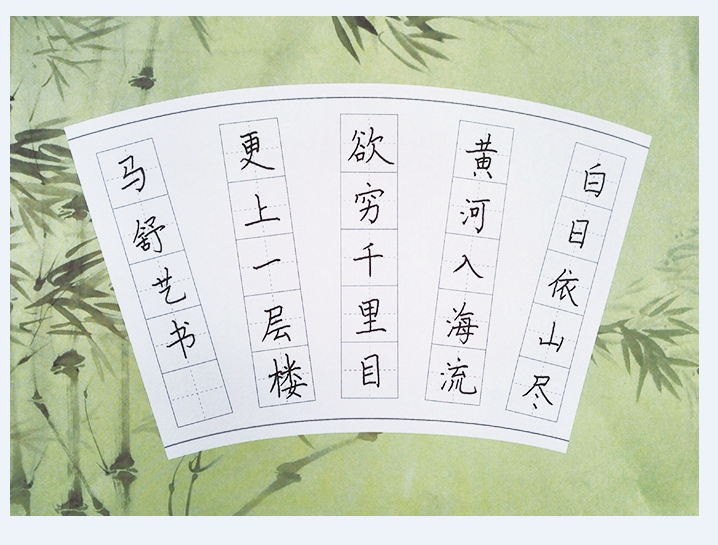 白日依山尽
黄河入海流
欲穷千里目
更上一层楼
马舒艺书